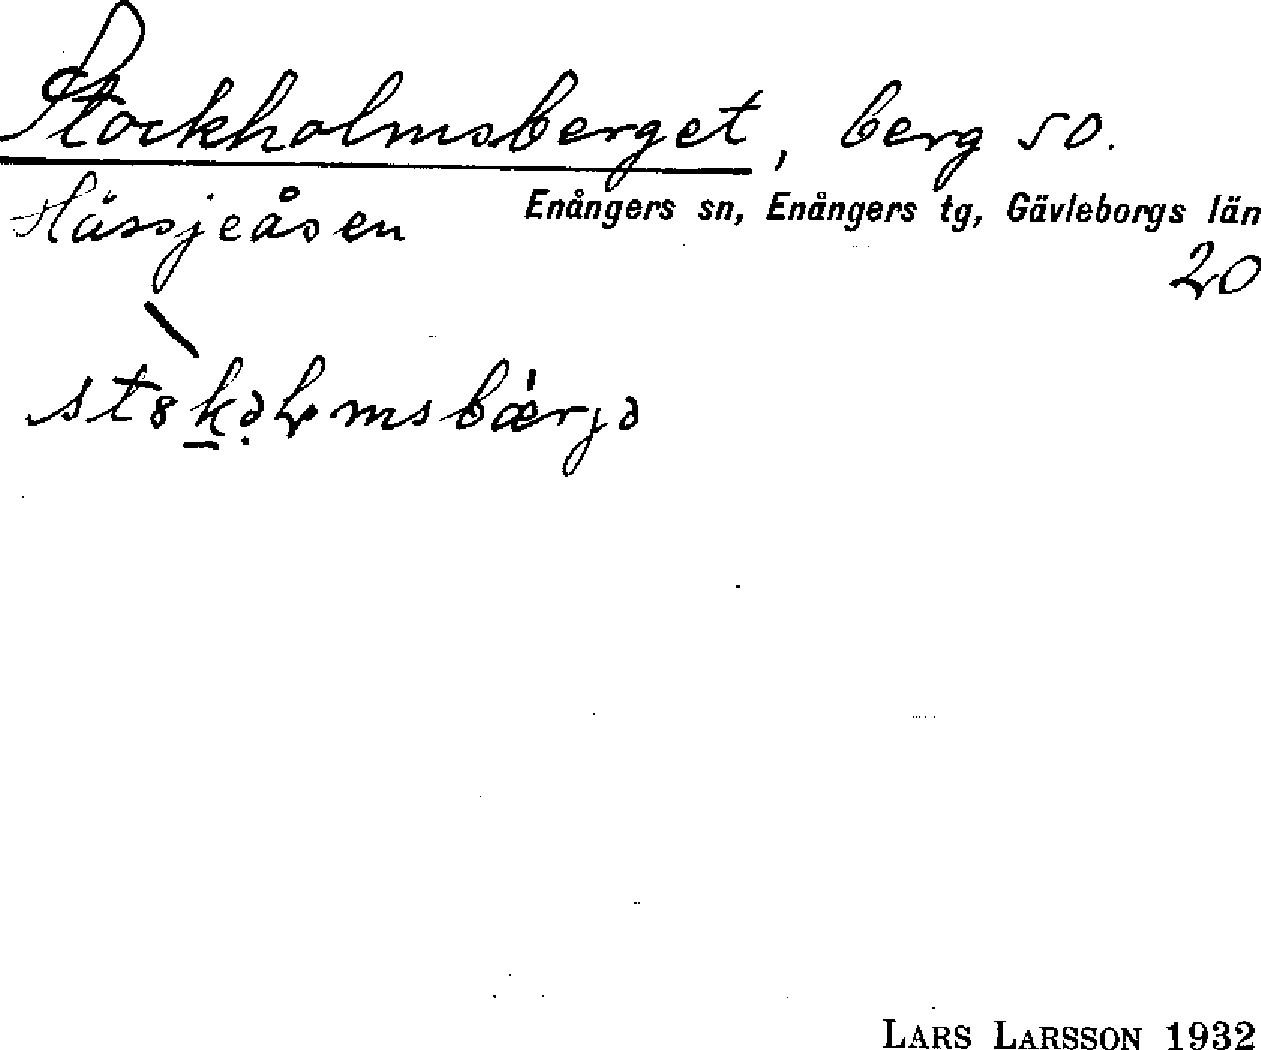 Stockholmsberget, berg SO.
Hässjeåsen Enångers sn, Enångers tg, Gävleborgs län
20
LARS LARSSON 1932